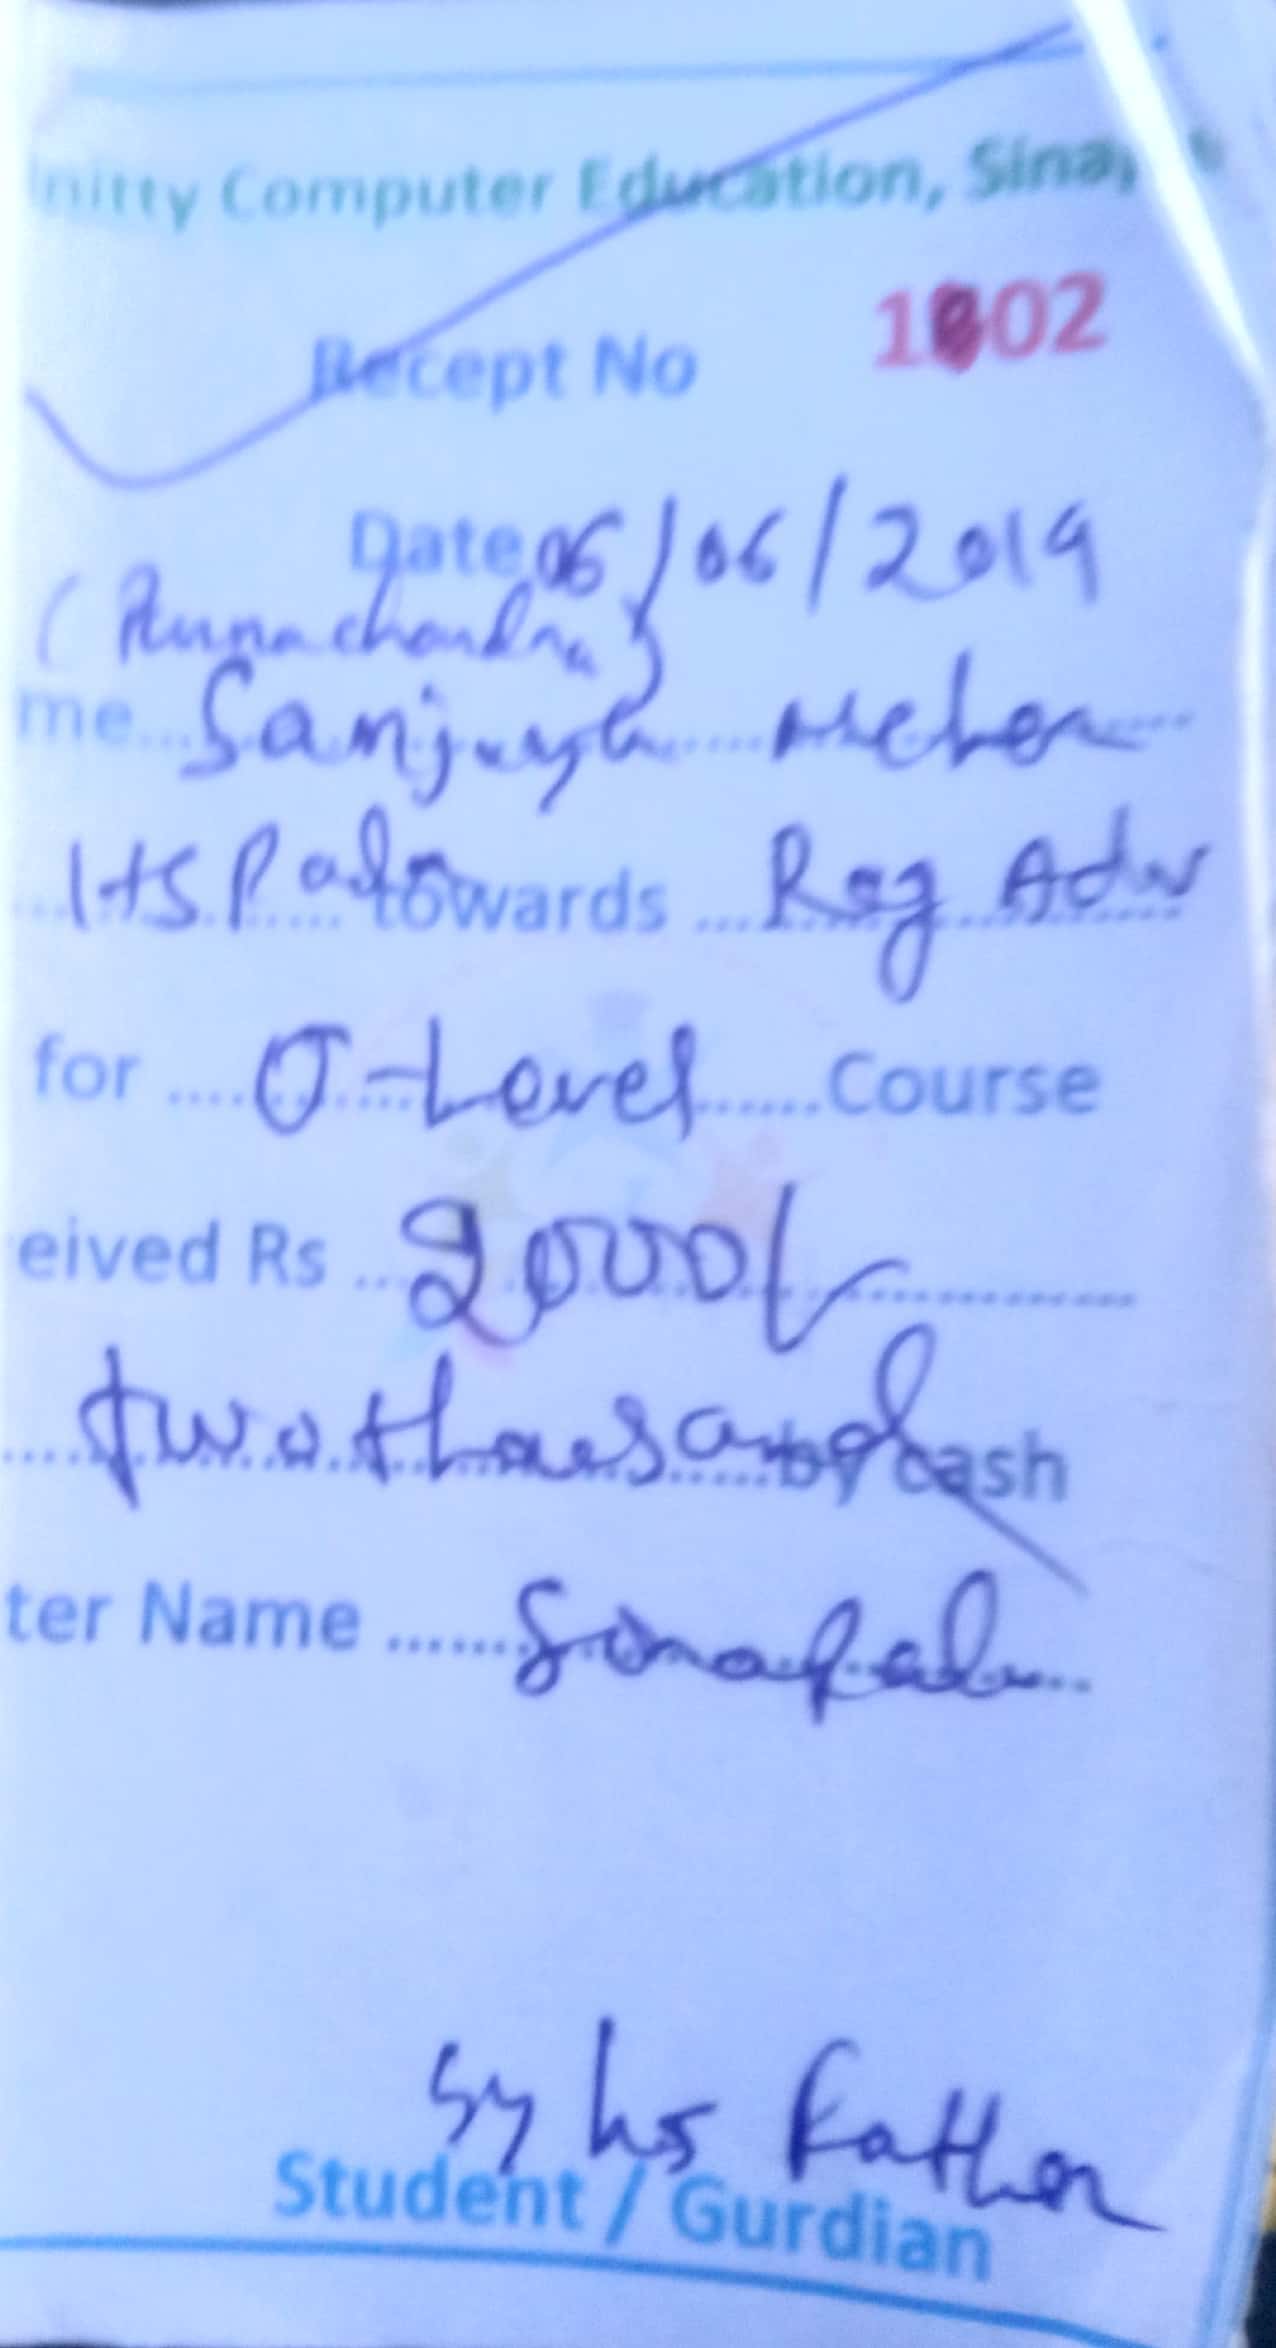 nitty Computer Education, Sina
Recept No 1802
Date 06/06/2019
(Purnachandra)
me... Sanjukta Meher
HSPada towards ... Reg Adv
for .... O-Level ...... Course
eived Rs .. 2000/-
.... two thousand by cash
ter Name ....... Sinapali
by hs Father
Student / Gurdian